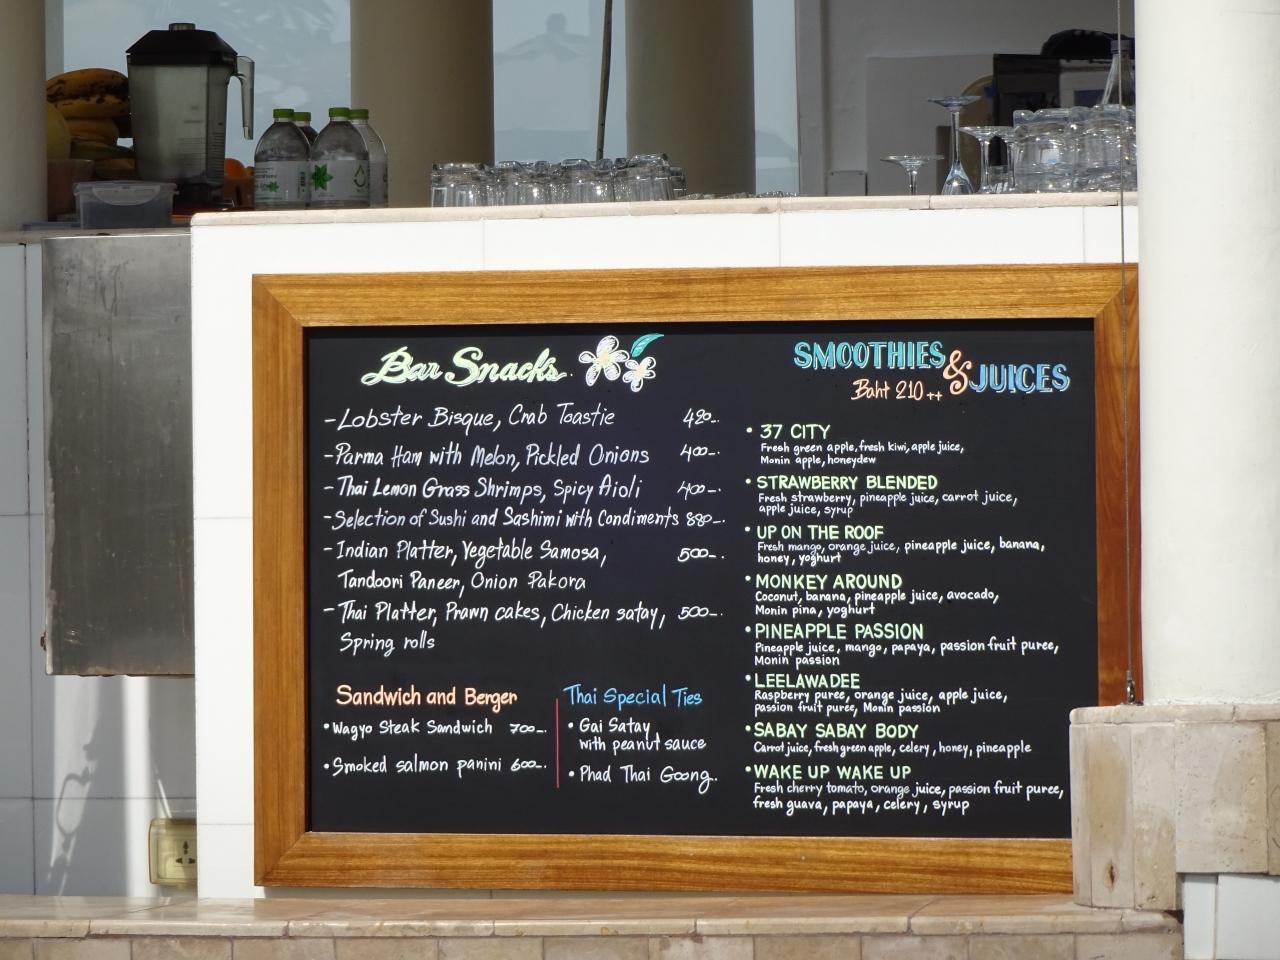 Bar Snacks
- Lobster Bisque, Crab Toastie 420-.
- Parma Ham with Melon, Pickled Onions 400-.
- Thai Lemon Grass Shrimps, Spicy Aioli 400-.
- Selection of Sushi and Sashimi with Condiments 880-.
- Indian Platter, Vegetable Samosa, 500-.
Tandoori Paneer, Onion Pakora
- Thai Platter, Prawn cakes, Chicken satay, 500-.
Spring rolls
Sandwich and Berger
• Wagyo Steak Sandwich 700-.
• Smoked salmon panini 600-.
Thai Special Ties
• Gai Satay
with peanut sauce
• Phad Thai Goong..
SMOOTHIES
& JUICES
Baht 210++
• 37 CITY
Fresh green apple, fresh kiwi, apple juice,
Monin apple, honeydew
• STRAWBERRY BLENDED
Fresh strawberry, pineapple juice, carrot juice,
apple juice, syrup
• UP ON THE ROOF
Fresh mango, orange juice, pineapple juice, banana,
honey, yoghurt
• MONKEY AROUND
Coconut, banana, pineapple juice, avocado,
Monin pina, yoghurt
• PINEAPPLE PASSION
Pineapple juice, mango, papaya, passion fruit puree,
Monin passion
• LEELAWADEE
Raspberry puree, orange juice, apple juice,
passion fruit puree, Monin passion
• SABAY SABAY BODY
Carrot juice, fresh green apple, celery, honey, pineapple
• WAKE UP WAKE UP
Fresh cherry tomato, orange juice, passion fruit puree,
fresh guava, papaya, celery, syrup